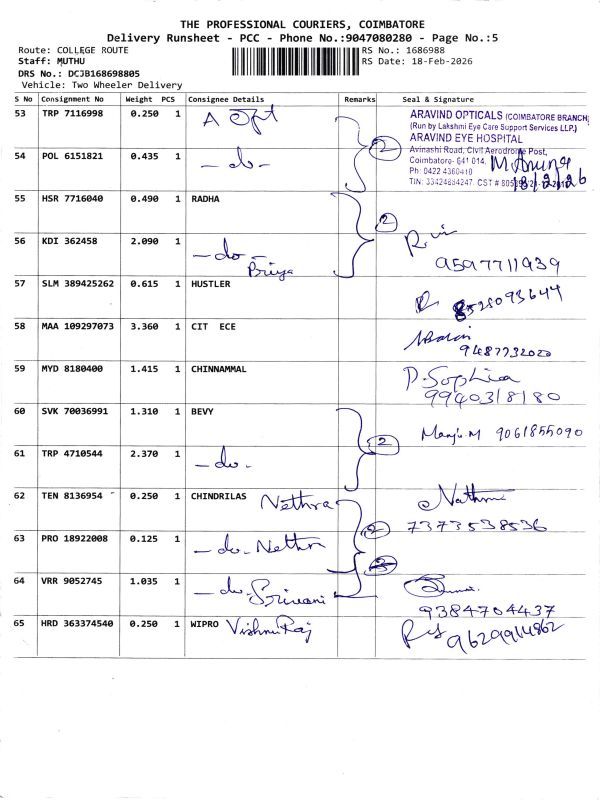 THE PROFESSIONAL COURIERS, COIMBATORE
Delivery Runsheet - PCC - Phone No.:9047080280 - Page No.:5
Route: COLLEGE ROUTE RS No.: 1686988
Staff: MUTHU RS Date: 18-Feb-2026
DRS No.: DCJB168698805
Vehicle: Two Wheeler Delivery
S No Consignment No Weight PCS Consignee Details Remarks Seal & Signature
53 TRP 7116998 0.250 1 A Opt
ARAVIND OPTICALS (COIMBATORE BRANCH)
(Run by Lakshmi Eye Care Support Services LLP.)
ARAVIND EYE HOSPITAL
54 POL 6151821 0.435 1 - do - 2
Avinashi Road, Civil Aerodrome Post,
Coimbatore- 641 014.
Ph: 0422 4360410
18/2/26
55 HSR 7716040 0.490 1 RADHA 2
56 KDI 362458 2.090 1 - do - Priya
9597711939
57 SLM 389425262 0.615 1 HUSTLER
8528093644
58 MAA 109297073 3.360 1 CIT ECE
9487732020
59 MYD 8180400 1.415 1 CHINNAMMAL P. Sophia
9940318180
60 SVK 70036991 1.310 1 BEVY 2 Manju M 9061855090
61 TRP 4710544 2.370 1 - do -
62 TEN 8136954 0.250 1 CHINDRILAS Nethra
7373538536
63 PRO 18922008 0.125 1 - do - Nethra 2
64 VRR 9052745 1.035 1 - do - Srivani
9384704437
65 HRD 363374540 0.250 1 WIPRO Vishnu Raj
9629914862